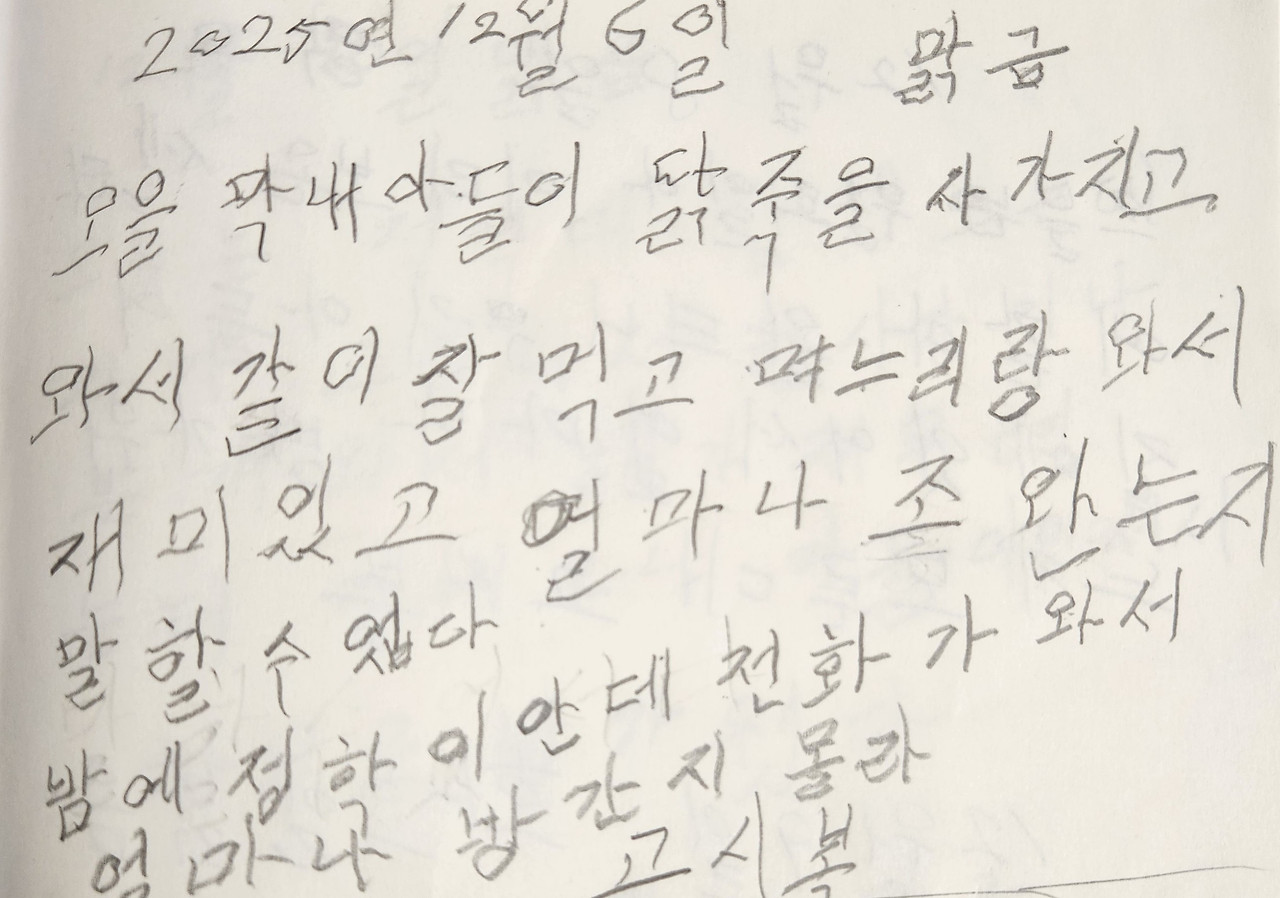 2025연 12월 6일 맑금
오을 막내아들이 닭죽을 사가지고
와서 같이 잘 먹고 며누리랑 와서
재미있고 얼마나 조완는지
말할수 없다
밤에 정학이 안데 전화가 와서
엄마나 방간지 몰라
고시복